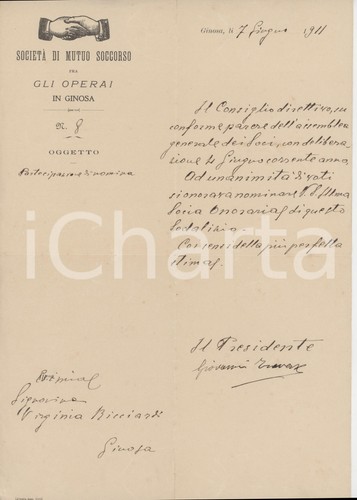 SOCIETÀ DI MUTUO SOCCORSO
FRA
GLI OPERAI
IN GINOSA
N. 8
OGGETTO
Partecipazione di nomina
Ginosa, li 7 Giugno 1911
Il Consiglio direttivo, su
conforme parere dell'assemblea
generale dei Soci, con delibera-
zione 4 Giugno corrente anno
Ad unanimità di voti
si onorava nominare V. S. Ill.ma
Socia Onoraria di questo
Sodalizio.
Con sensi della più perfetta
stima
Il Presidente
Giovanni
Signorina
Virginia Ricciardi
Ginosa
iCharta